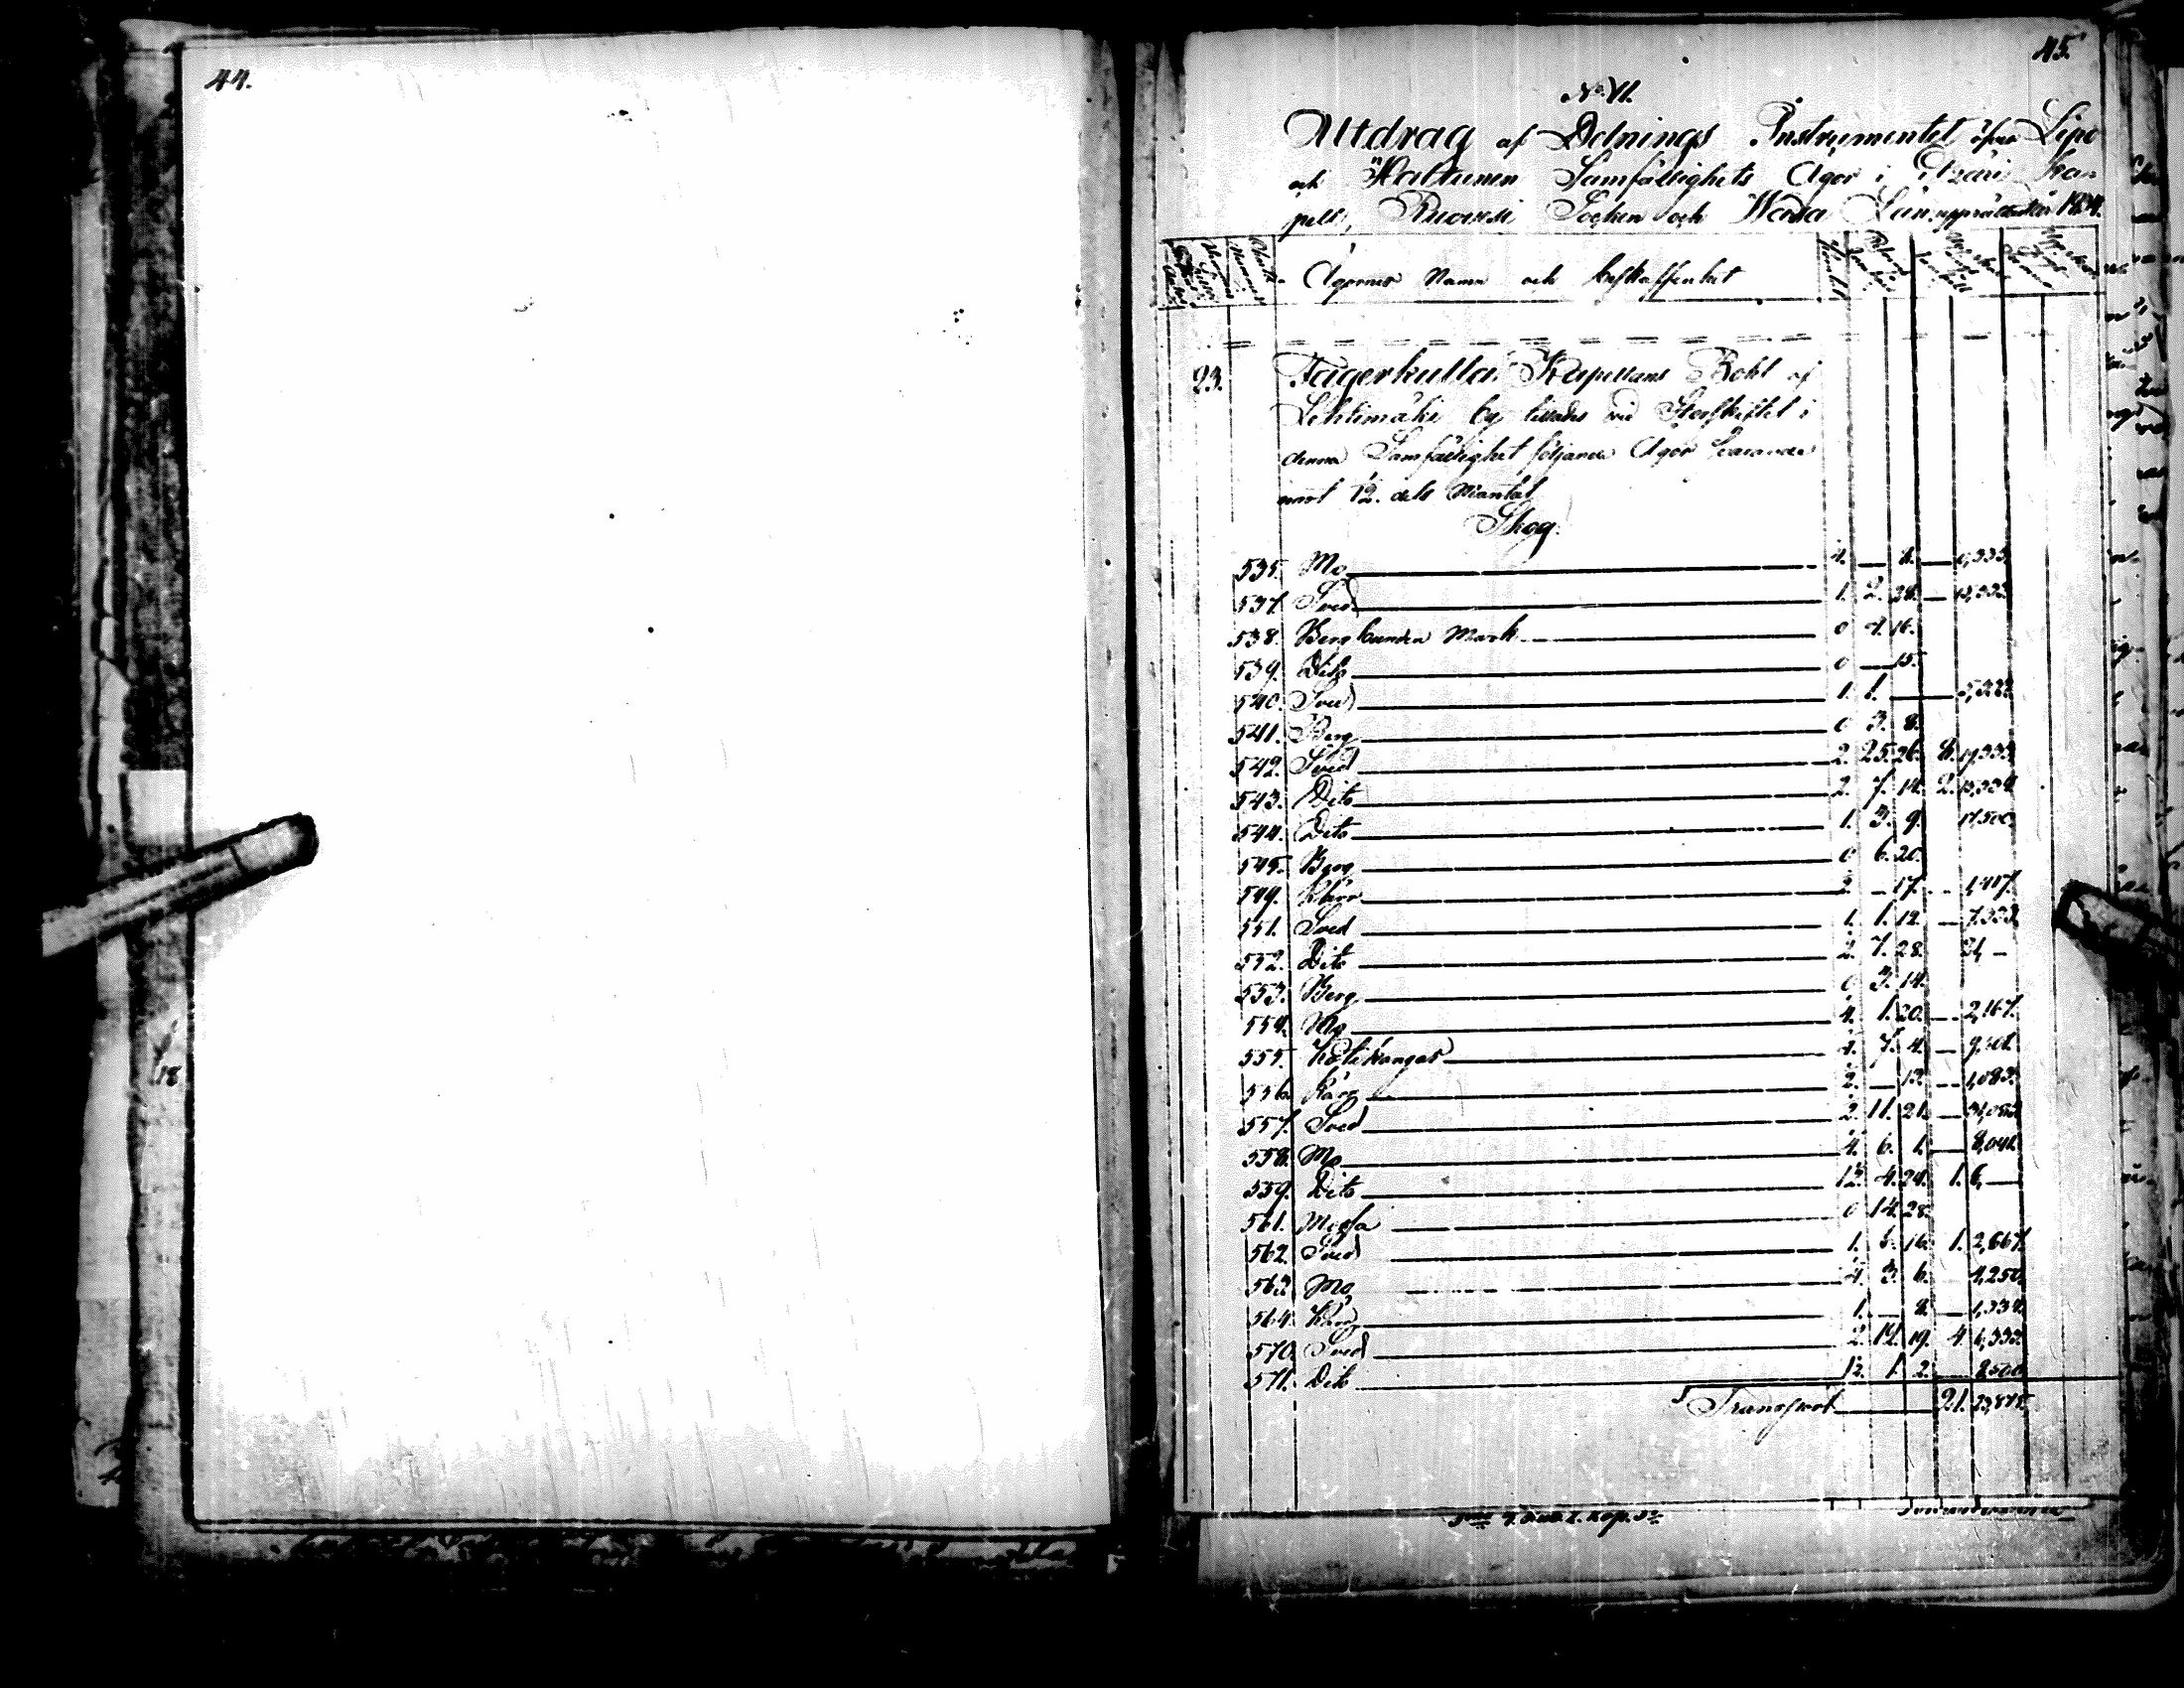 44.
45.
No VII.
Utdrag af Delnings Instrumentet öfver Lipo
och Hallunen Samfällighets Ägor i Etzäri Ka-
pell, Ruovesi Socken och Wasa Län upprättadt år
Ägornes Namn och beskaffenhet
23. Fägerkulla Kapellans Bohl af
Lehtimäki by tillades vid Storskiftet i
denna Samfällighet följande Ägor svarande
emot 12. dels Mantal
Skog.
535. Mo 4. — 4. —
537. Sved 1. 2. 28. — 15,333.
538. Bergbunden Mark 0 4. 16.
539. Dito 0 — 15.
540. Sved 1. 1. — — 5,333.
541. Berg 0 3. 8.
542. Sved 2. 25. 26. 8. 17,333.
543. Dito 2. 7. 14. 2. 15,334.
544. Dito 1. 3. 9. 17,500.
545. Berg 0 6. 20.
549. Kärr 2. — 17. — 1,417.
551. Sved 1. 1. 12. — 7,333.
552. Dito 2. 7. 28. 21, —
553. Berg 0 3. 14.
554. Mo 4. 1. 20. — 2,167.
555. Kotikangas 4. 7. 4. —
556. Kärr 2. — 13. — 1,083.
557. Sved 2. 11. 21. —
558. Mo 4. 6. 1. — 8,041.
559. Dito 12. 4. 24. 1. 6, —
561. Mossa 0 14. 28.
562. Sved 1. 5. 16. 1. 2,667.
563. Mo 4. 3. 6. 4,250.
564. Kärr 1. — 8. — 1,334.
570. Sved 2. 14. 19. 4. 6,333.
571. Dito 12. 1. 2. — 8,500.
Transport 21. 23,875.